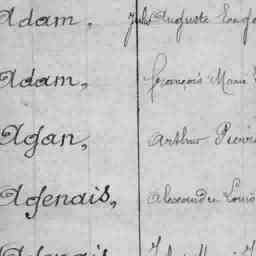 Adam, Jules Auguste
Adam, François Marie
Agan, Arthur Pierre
Agenais, Alexandre Louis
Agenais